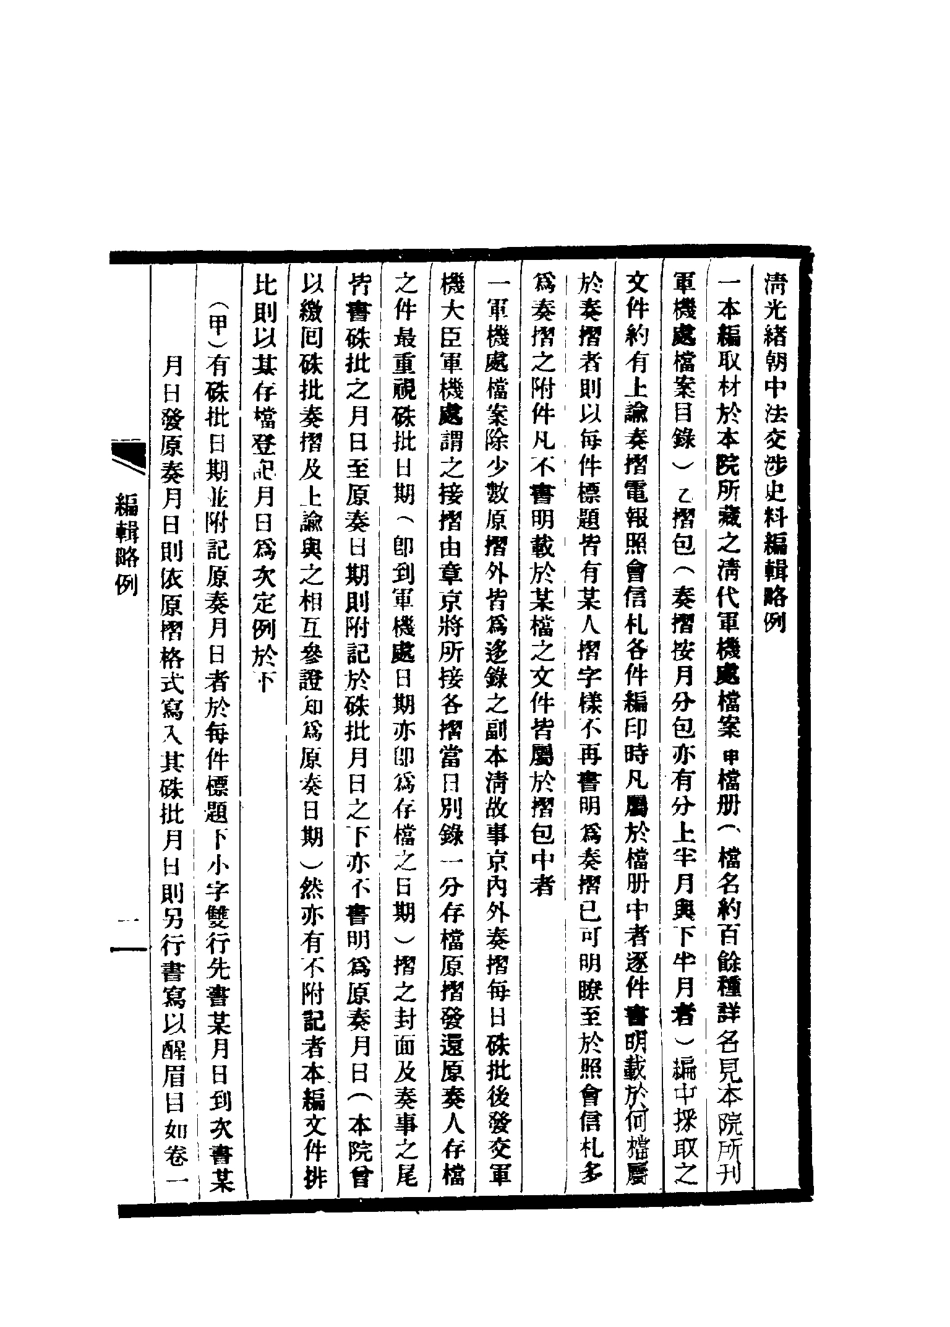 清光緒朝中法交涉史料編輯略例
一本編取材於本院所藏之清代軍機處檔案甲檔册（檔名約百餘種詳名見本院所刊
軍機處檔案目錄）乙摺包（奏摺按月分包亦有分上半月與下半月者）編中採取之
文件約有上諭奏摺電報照會信札各件編印時凡屬於檔册中者逐件書明載於何檔屬
於奏摺者則以每件標題皆有某人摺字樣不再書明爲奏摺已可明瞭至於照會信札多
爲奏摺之附件凡不書明載於某檔之文件皆屬於摺包中者
一軍機處檔案除少數原摺外皆爲迻錄之副本清故事京內外奏摺每日硃批後發交軍
機大臣軍機處謂之接摺由章京將所接各摺當日別錄一分存檔原摺發還原奏人存檔
之件最重視硃批日期（卽到軍機處日期亦卽爲存檔之日期）摺之封面及奏事之尾
皆書硃批之月日至原奏日期則附記於硃批月日之下亦不書明爲原奏月日（本院曾
以繳回硃批奏摺及上諭與之相互參證知爲原奏日期）然亦有不附記者本編文件排
比則以其存檔登記月日爲次定例於下
（甲）有硃批日期並附記原奏月日者於每件標題下小字雙行先書某月日到次書某
月日發原奏月日則依原摺格式寫入其硃批月日則另行書寫以醒眉目如卷一
編輯略例
一